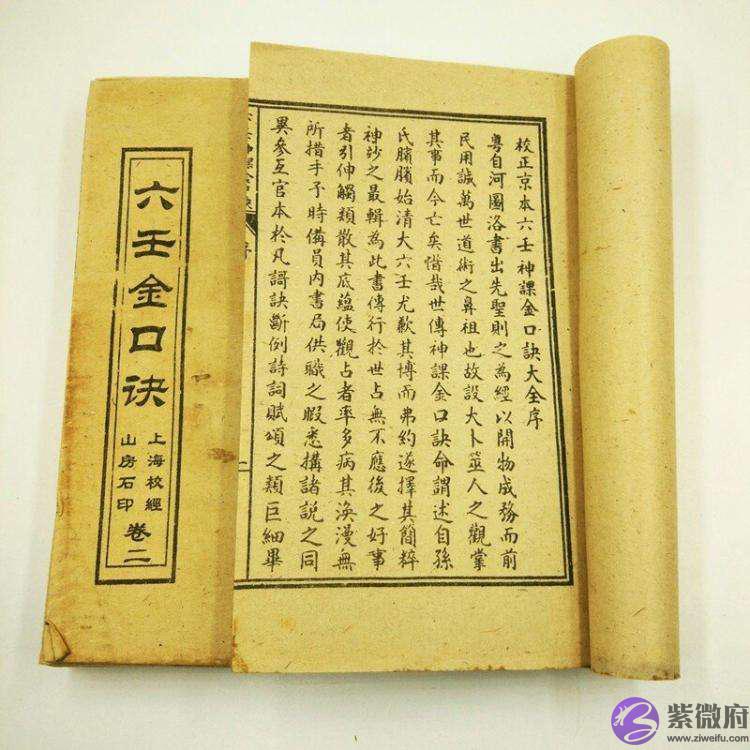 校正京本六壬神課金口訣大全序
粵自河圖洛書出先聖則之為經以開物成務而前
民用誠萬世道術之鼻祖也故設大卜筮人之觀掌
其事而今亡矣惜哉世傳神課金口訣命謂述自孫
氏臏臏始清大六壬尤歉其博而弗約遂擇其簡粹
神玅之最輯為此書傳行於世占無不應後之好事
者引伸觸類散其底蘊使觀占者率多病其渙漫無
所措手予時備員内書局供職之暇悉搆諸說之同
異參互官本於凡謌訣斷例詩詞賦頌之類巨細畢
序
二
六壬金口诀
上海校經
山房石印
卷二
紫微府
www.ziweifu.com